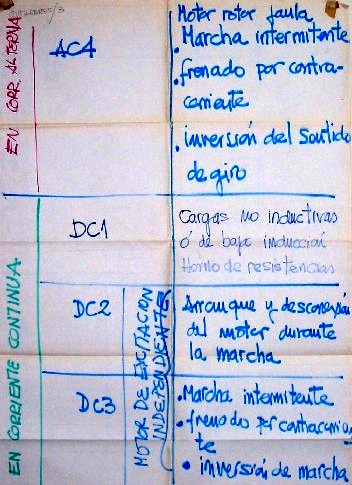 EN CORR. ALTERNA
AC4
Motor rotor jaula
• Marcha intermitente
• frenado por contra-
corriente
• inversión del sentido
de giro
EN CORRIENTE CONTINUA
DC1
Cargas no inductivas
ó de baja inducción
Horno de resistencias
MOTOR DE EXCITACION
INDEPENDIENTE
DC2
Arranque y desconexión
del motor durante
la marcha
DC3
• Marcha intermitente
• frenado por contracorrien
te
• inversión de marcha